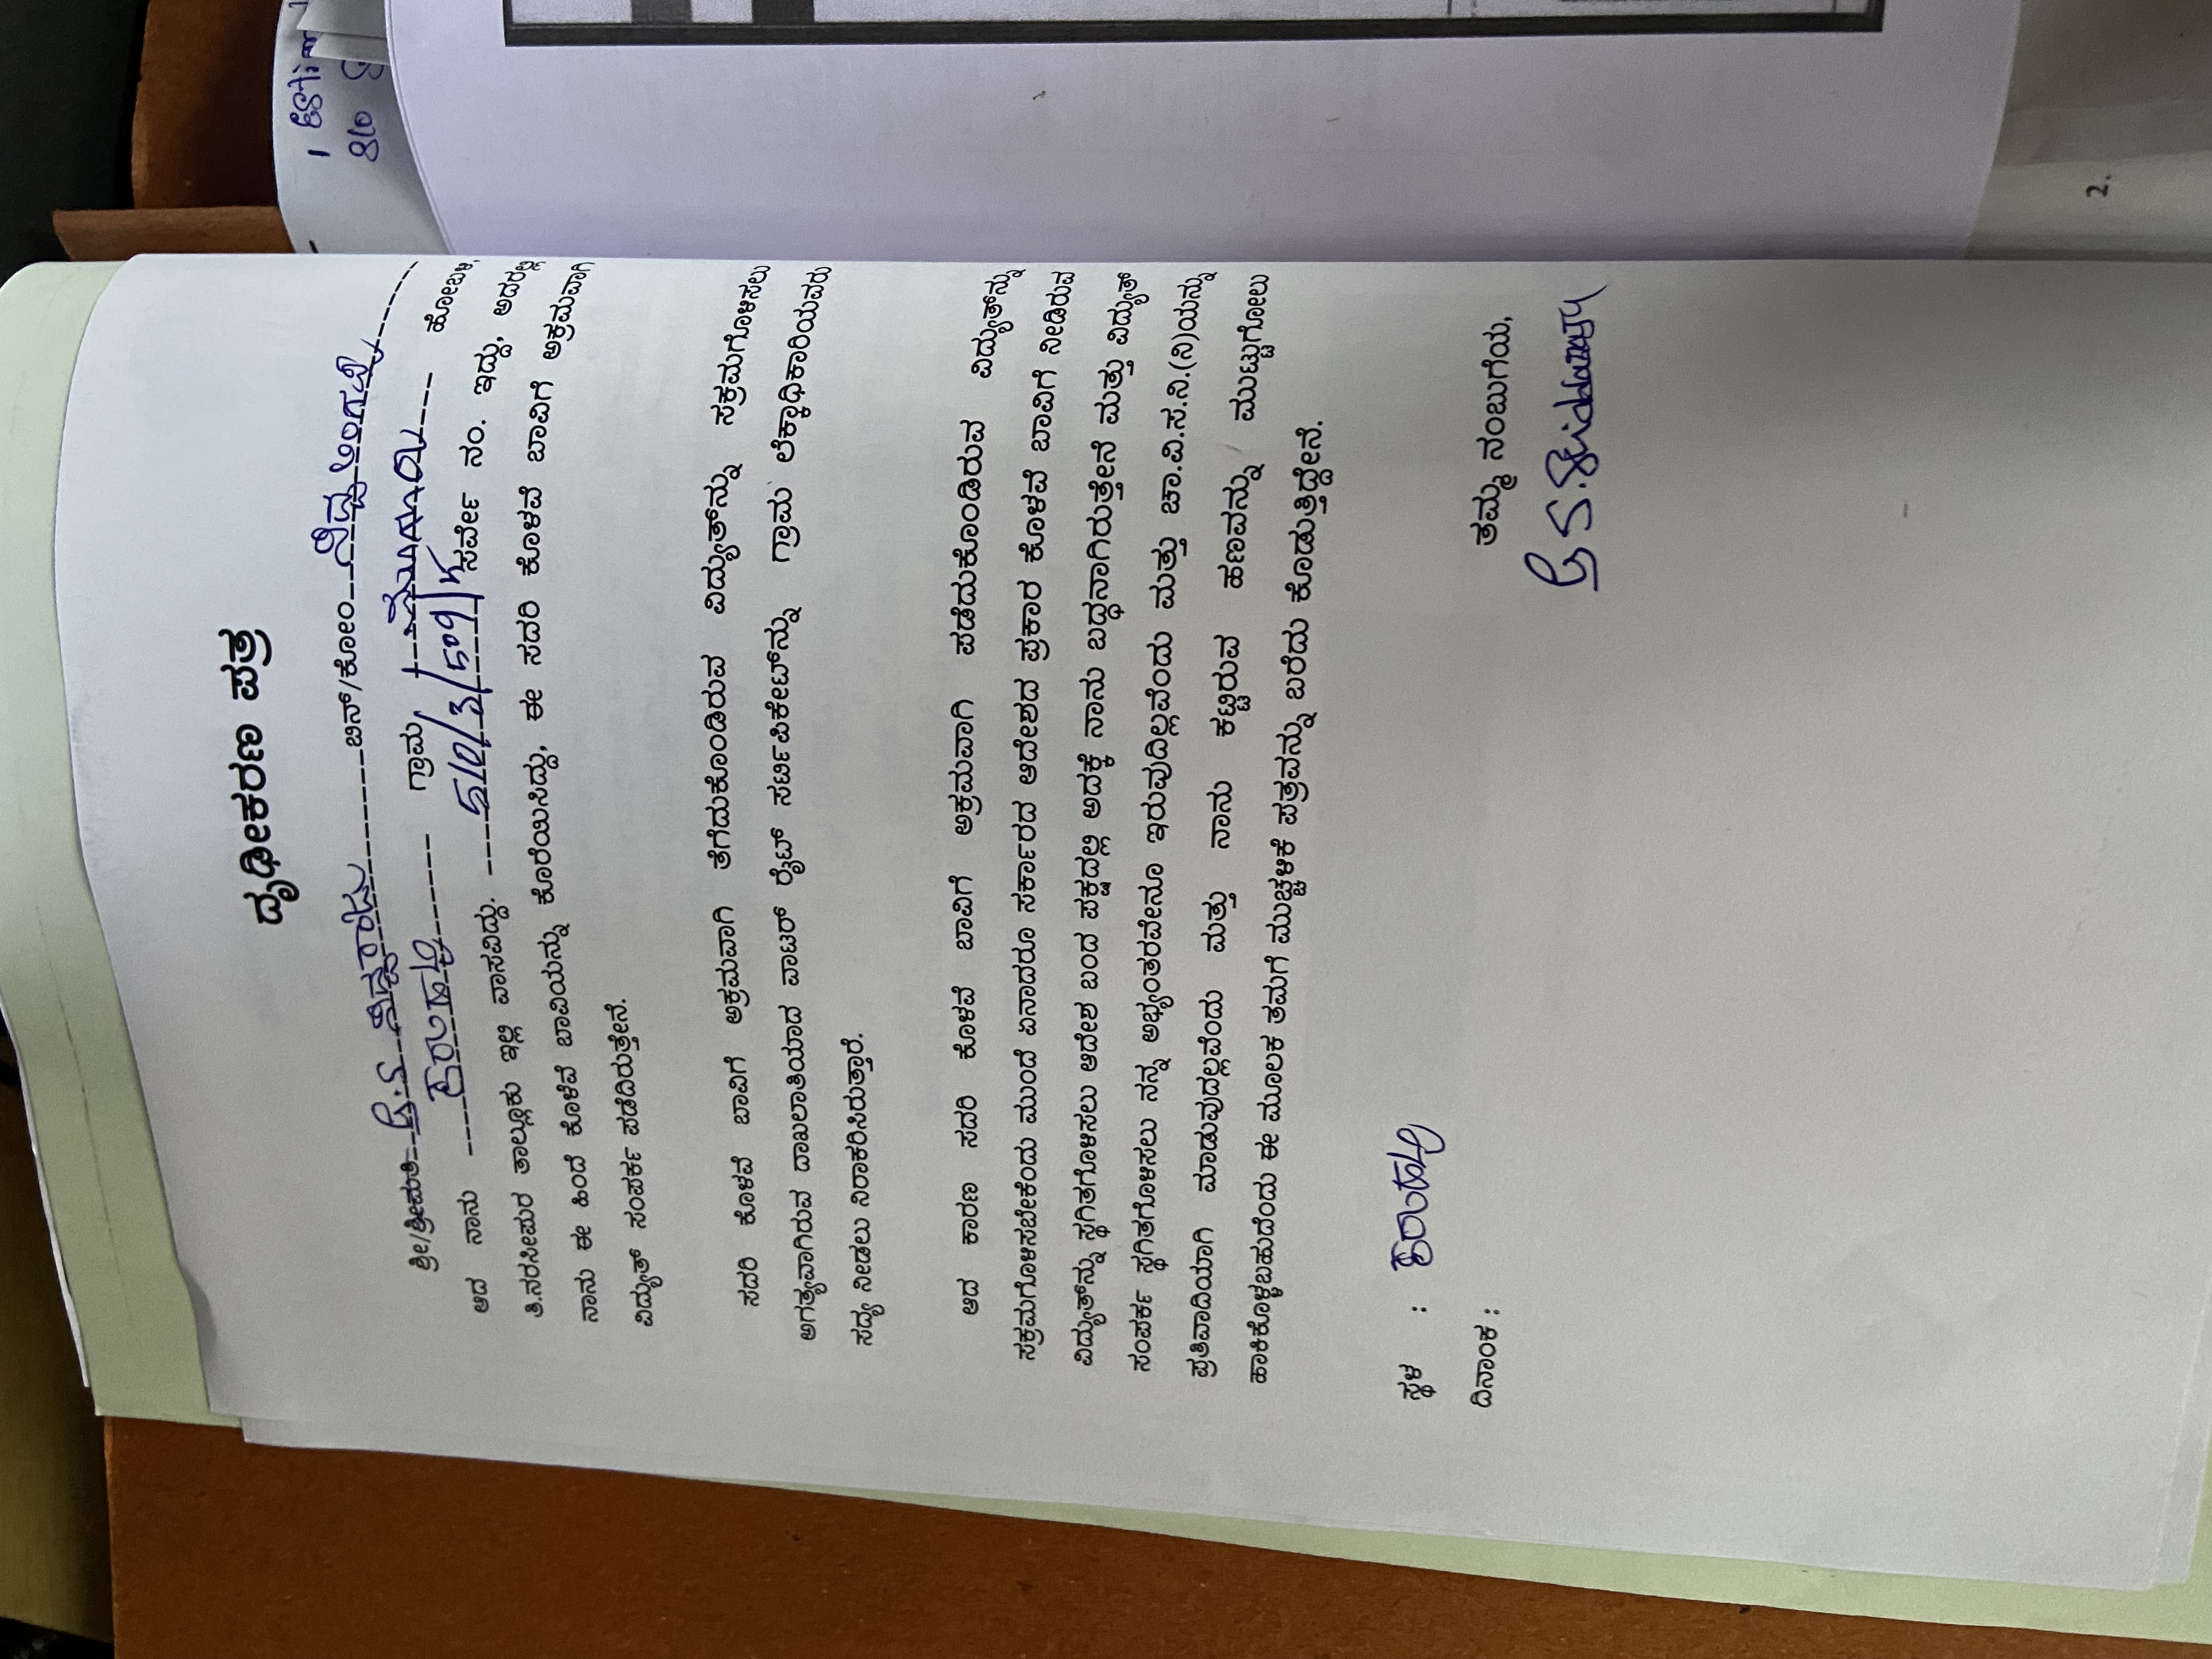 ದೃಢೀಕರಣ ಪತ್ರ
ಶ್ರೀ/ಶ್ರೀಮತಿ ಬಿ.ಎಸ್ ಸಿದ್ದರಾಜು ಬಿನ್/ಕೋಂ ಸಿದ್ದಲಿಂಗಶೆಟ್ಟಿ
ಆದ ನಾನು ಗ್ರಾಮ ಹೋಬಳಿ,
ತಿ.ನರಸೀಪುರ ತಾಲ್ಲೂಕು ಇಲ್ಲಿ ವಾಸವಿದ್ದು. ಸರ್ವೇ ನಂ. ಇದ್ದು, ಅದರಲ್ಲಿ
ನಾನು ಈ ಹಿಂದೆ ಕೊಳವೆ ಬಾವಿಯನ್ನು ಕೊರೆಯಿಸಿದ್ದು, ಈ ಸದರಿ ಕೊಳವೆ ಬಾವಿಗೆ ಅಕ್ರಮವಾಗಿ
ವಿದ್ಯುತ್ ಸಂಪರ್ಕ ಪಡೆದಿರುತ್ತೇನೆ.
ಸದರಿ ಕೊಳವೆ ಬಾವಿಗೆ ಅಕ್ರಮವಾಗಿ ತೆಗೆದುಕೊಂಡಿರುವ ವಿದ್ಯುತ್‌ನ್ನು ಸಕ್ರಮಗೊಳಿಸಲು
ಅಗತ್ಯವಾಗಿರುವ ದಾಖಲಾತಿಯಾದ ವಾಟರ್ ರೈಟ್ ಸರ್ಟಿಪಿಕೇಟ್‌ನ್ನು ಗ್ರಾಮ ಲೆಕ್ಕಾಧಿಕಾರಿಯವರು
ಸಧ್ಯ ನೀಡಲು ನಿರಾಕರಿಸಿರುತ್ತಾರೆ.
ಆದ ಕಾರಣ ಸದರಿ ಕೊಳವೆ ಬಾವಿಗೆ ಅಕ್ರಮವಾಗಿ ಪಡೆದುಕೊಂಡಿರುವ ವಿದ್ಯುತ್‌ನ್ನು
ಸಕ್ರಮಗೊಳಿಸಬೇಕೆಂದು ಮುಂದೆ ಏನಾದರೂ ಸರ್ಕಾರದ ಆದೇಶದ ಪ್ರಕಾರ ಕೊಳವೆ ಬಾವಿಗೆ ನೀಡಿರುವ
ವಿದ್ಯುತ್‌ನ್ನು ಸ್ಥಗಿತಗೊಳಿಸಲು ಆದೇಶ ಬಂದ ಪಕ್ಷದಲ್ಲಿ ಅದಕ್ಕೆ ನಾನು ಬದ್ಧನಾಗಿರುತ್ತೇನೆ ಮತ್ತು ವಿದ್ಯುತ್
ಸಂಪರ್ಕ ಸ್ಥಗಿತಗೊಳಿಸಲು ನನ್ನ ಅಭ್ಯಂತರವೇನೂ ಇರುವುದಿಲ್ಲವೆಂದು ಮತ್ತು ಚಾ.ವಿ.ಸ.ನಿ.(ನಿ)ಯನ್ನು
ಪ್ರತಿವಾದಿಯಾಗಿ ಮಾಡುವುದಲ್ಲವೆಂದು ಮತ್ತು ನಾನು ಕಟ್ಟಿರುವ ಹಣವನ್ನು ಮುಟ್ಟುಗೋಲು
ಹಾಕಿಕೊಳ್ಳಬಹುದೆಂದು ಈ ಮೂಲಕ ತಮಗೆ ಮುಚ್ಚಳಿಕೆ ಪತ್ರವನ್ನು ಬರೆದು ಕೊಡುತ್ತಿದ್ದೇನೆ.
ಸ್ಥಳ :
ದಿನಾಂಕ :
ತಮ್ಮ ನಂಬುಗೆಯ,
2.